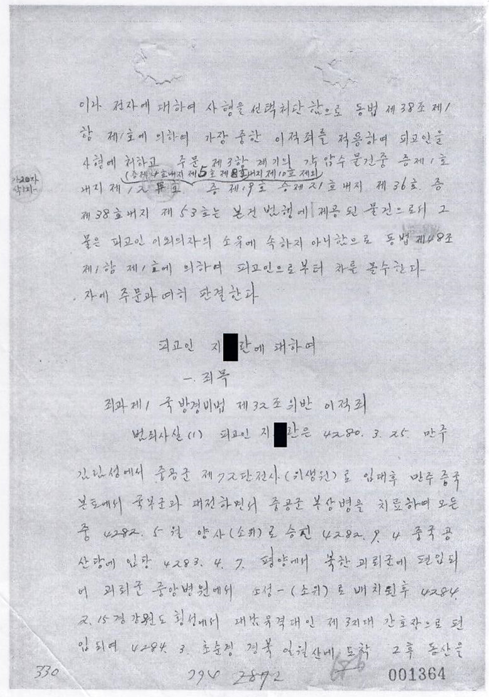 이라 전자에 대하여 사형을 선택처단함으로 동법 제38조 제1
항 제1호에 의하여 가장 중한 이적죄를 적용하여 피고인을
사형에 처하고 주문 제3항 제기의 각 압수물건중 증 제1호
내지 제12호 증 제19호 증 제21호 내지 제36호 증
제38호내지 제53호는 본건 범행에 제공된 물건으로서 그
물은 피고인 이외의자의 소유에 속하지 아니함으로 동법 제48조
제1항 제1호에 의하여 피고인으로부터 차를 몰수한다
자에 주문과 여히 판결한다
피고인 지 란에 대하여
一. 죄목
죄과 제1 국방경비법 제32조위반 이적죄
범죄사실(1) 피고인 지 란은 4280.3.25 만주
간난성에서 중공군 제72단전사(위생원)로 입대후 만주 중국
본토에서 국부군과 대전하면서 중공군 부상병을 치료하여 오든
중 4282.5월 양사(소위)로 승진 4282.9.4 중국공
산당에 입당 4283.4.7. 평양에서 북한 괴뢰군에 편입되
어 괴뢰군 중앙병원에서 (소위)로 배치된후 4284.
2.15경 강원도 횡성에서 대남유격대인 제3지대 간호장으로 편
입되여 4284.3. 초순경 경북 일월산에 도착 그후 동산을
330 794 2892 676 001364